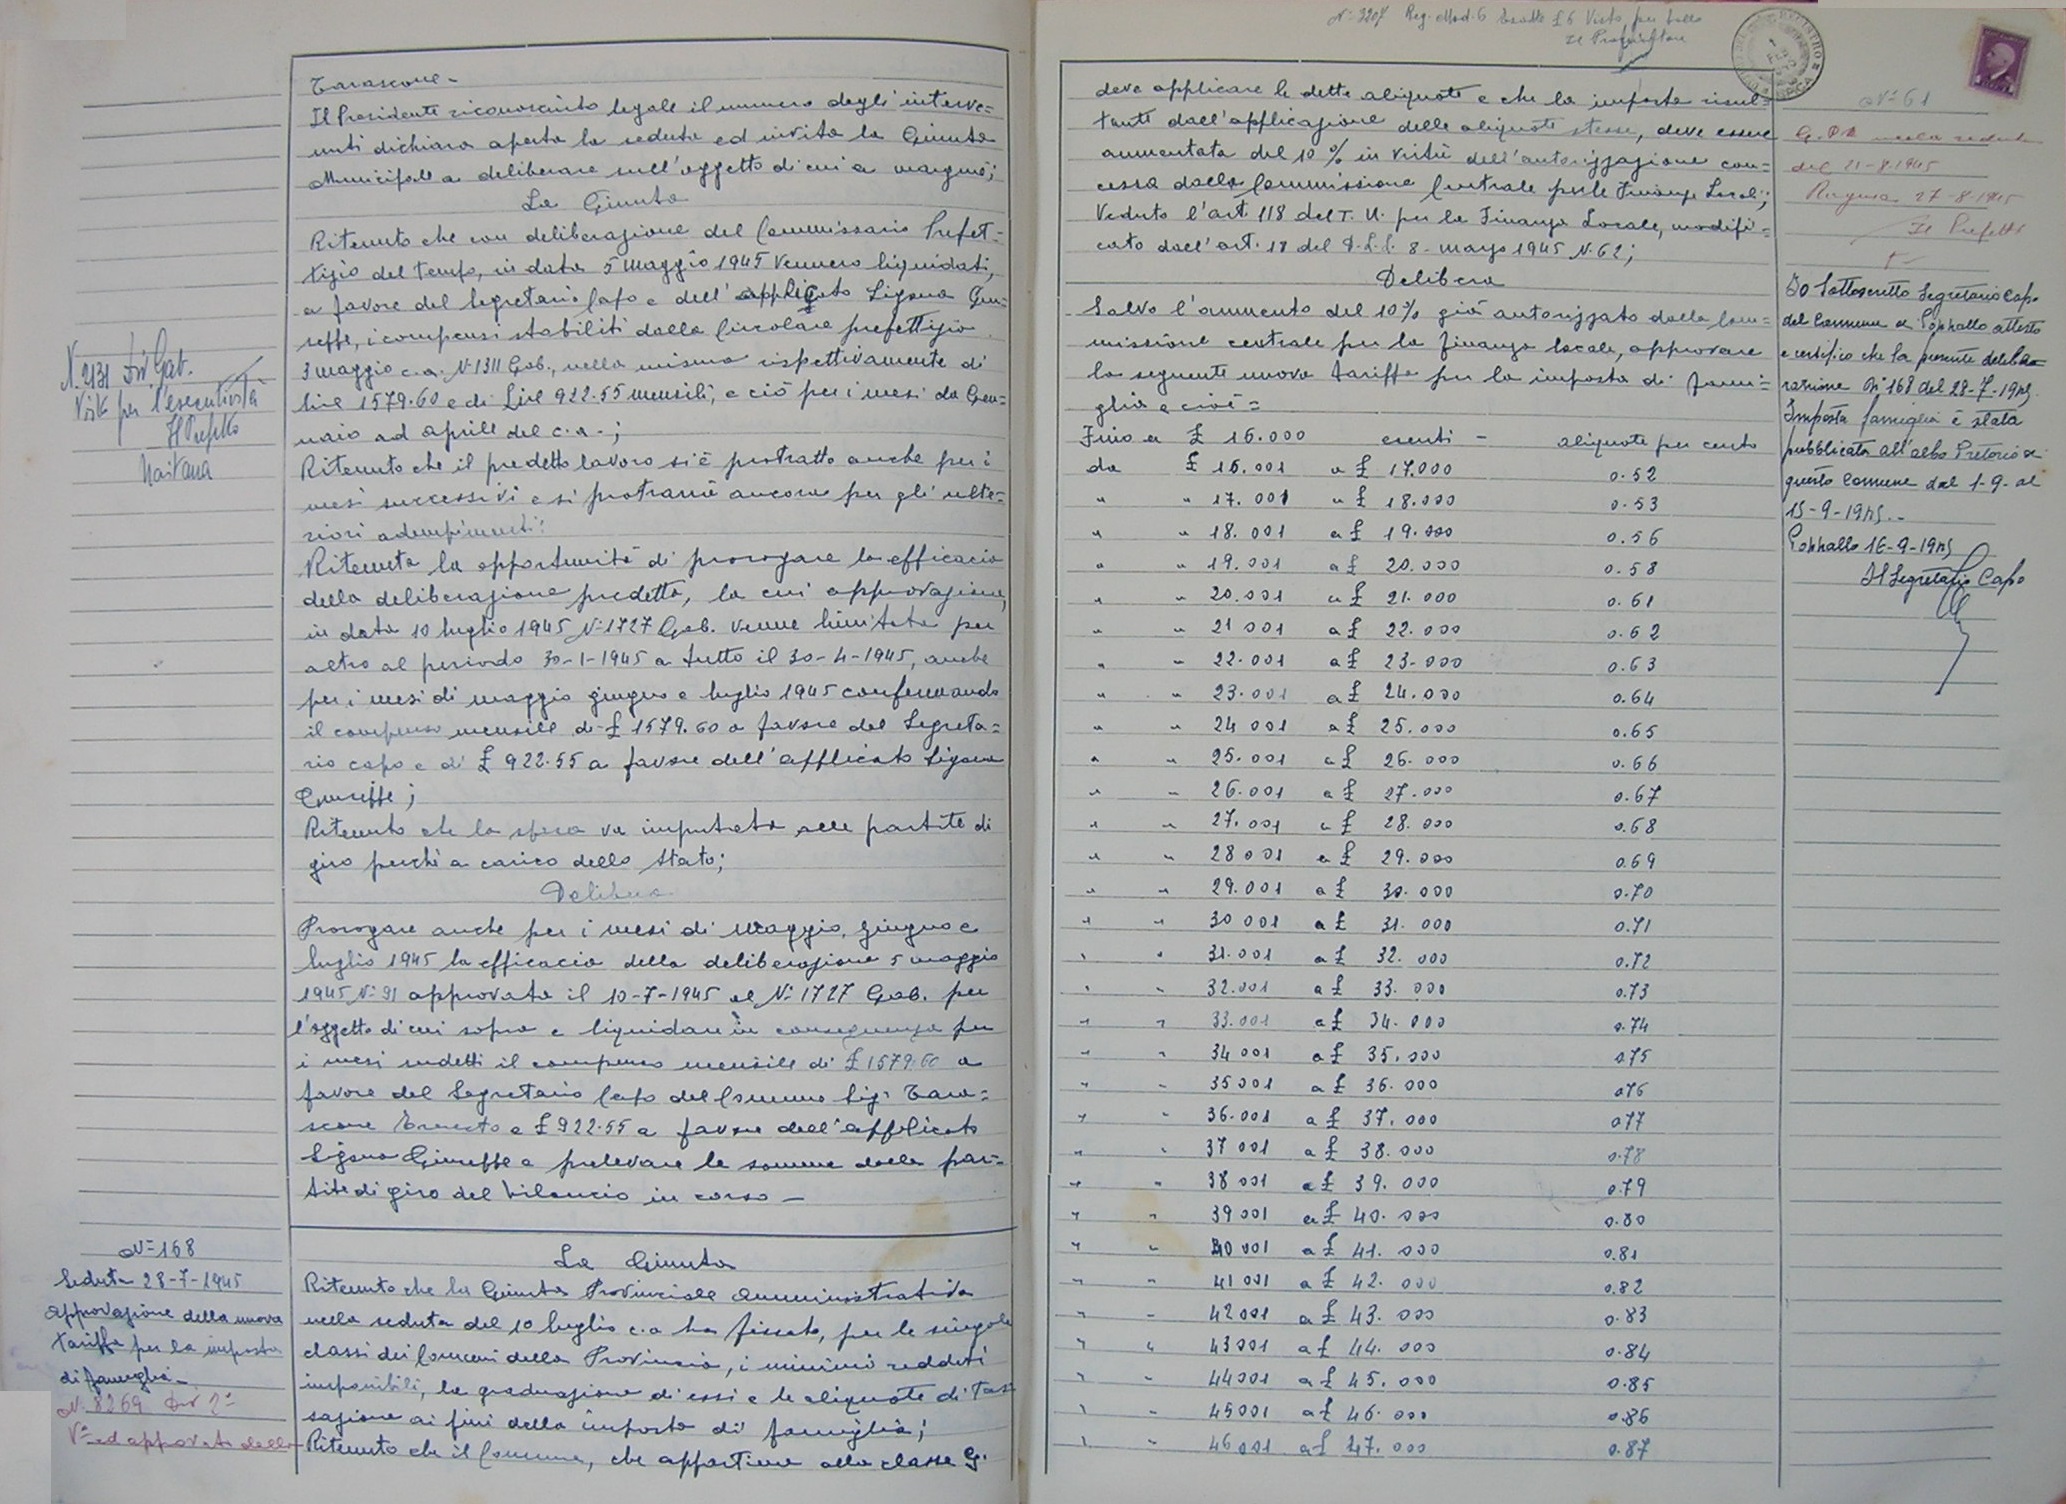 Tarascone -
Il Presidente riconosciuto legale il numero degli interve=
nuti dichiara aperta la seduta ed invita la Giunta
Municipale a deliberare sull'oggetto di cui a margine;
La Giunta
Ritenuto che con deliberazione del Commissario Prefet=
tizio del tempo, in data 5 Maggio 1945 vennero liquidati,
a favore del Segretario Capo e dell'applicato Ligona Giu=
seppe, i compensi stabiliti dalla Circolare prefettizia
3 maggio c.a. N. 1311 Gab., nella misura rispettivamente di
Lire 1579.60 e di Lire 922.55 mensili, e ciò per i mesi da Gen=
naio ad aprile del c.a.;
Ritenuto che il predetto lavoro si è protratto anche per i
mesi successivi e si protrarrà ancora per gli ulte=
riori adempimenti:
Ritenuta la opportunità di prorogare la efficacia
della deliberazione predetta, la cui approvazione,
in data 10 luglio 1945 N. 1727 Gab. venne limitata per
altro al periodo 30-1-1945 a tutto il 30-4-1945, anche
per i mesi di maggio giugno e luglio 1945 confermando
il compenso mensile di £ 1579.60 a favore del Segreta=
rio capo e di £ 922.55 a favore dell'applicato Ligona
Giuseppe;
Ritenuto che la spesa va imputata alle partite di
giro perchè a carico dello Stato;
Delibera
Prorogare anche per i mesi di Maggio, giugno e
luglio 1945 la efficacia della deliberazione 5 maggio
1945 N. 91 approvata il 10-7-1945 al N. 1727 Gab. per
l'oggetto di cui sopra e liquidare in conseguenza per
i mesi sudetti il compenso mensile di £ 1579.60 a
favore del Segretario Capo del Comune Sig. Tara=
scone Ernesto e £ 922.55 a favore dell'applicato
Ligona Giuseppe e prelevare le somme dalle par=
tite di giro del bilancio in corso -
N. 2131 Div. Gab.
Visto per l'esecutività
Il Prefetto
N= 168
Seduta 28-7-1945
Approvazione della nuova
tariffa per la imposta
di famiglia -
N. 8269 Div 2a
Vo ed approvato dalla
La Giunta
Ritenuto che la Giunta Provinciale Amministrativa
nella seduta del 10 luglio c.a ha fissato, per le singole
classi dei Comuni della Provincia, i minimi redditi
imponibili, la graduazione di essi e le aliquote di tas=
sazione ai fini della imposta di famiglia;
Ritenuto che il Comune, che appartiene alla classe G.
N= 3207 Reg. Mod. 6 Esatte £ 6 Visto per bollo
Il Procuratore
deve applicare le dette aliquote e che la imposta risul=
tante dall'applicazione delle aliquote stesse, deve essere
aumentata del 10 % in virtù dell'autorizzazione con=
cessa dalla Commissione Centrale per le Finanze Locali;
Veduto l'art. 118 del T. U. per la Finanza Locale, modifi=
cato dall'art. 18 del D.L.L. 8 - marzo 1945 N. 62;
Delibera
Salvo l'aumento del 10% già autorizzato dalla Com=
missione centrale per la finanza locale, approvare
la seguente nuova tariffa per la imposta di fami=
glia e cioè =
Fino a £ 16.000 esenti - aliquote per cento
da £ 16.001 a £ 17.000 0.52
" " 17.001 a £ 18.000 0.53
" " 18.001 a £ 19.000 0.56
" " 19.001 a £ 20.000 0.58
" " 20.001 a £ 21.000 0.61
" " 21 001 a £ 22.000 0.62
" " 22.001 a £ 23.000 0.63
" " 23.001 a £ 24.000 0.64
" " 24 001 a £ 25.000 0.65
" " 25.001 a £ 26.000 0.66
" " 26.001 a £ 27.000 0.67
" " 27.001 a £ 28.000 0.68
" " 28 001 a £ 29.000 0.69
" " 29.001 a £ 30.000 0.70
" " 30 001 a £ 31.000 0.71
" " 31.001 a £ 32.000 0.72
" " 32.001 a £ 33.000 0.73
" " 33.001 a £ 34.000 0.74
" " 34 001 a £ 35.000 0.75
" " 35 001 a £ 36.000 0.76
" " 36.001 a £ 37.000 0.77
" " 37 001 a £ 38.000 0.78
" " 38 001 a £ 39.000 0.79
" " 39 001 a £ 40.000 0.80
" " 40 001 a £ 41.000 0.81
" " 41 001 a £ 42.000 0.82
" " 42001 a £ 43.000 0.83
" " 43001 a £ 44.000 0.84
" " 44001 a £ 45.000 0.85
" " 45001 a £ 46.000 0.86
" " 46001 a £ 47.000 0.87
N= 61
G.P.A. nella seduta
del 21-8-1945
Ragusa 27-8-1945
Il Prefetto
Io Sottoscritto Segretario Capo
del Comune di Pozzallo attesto
e certifico che la presente delibe
razione N. 168 del 28-7-1945
Imposta famiglia è stata
pubblicata all'albo Pretorio di
questo Comune dal 1-9- al
15-9-1945.-
Pozzallo 16-9-1945
Il Segretario Capo